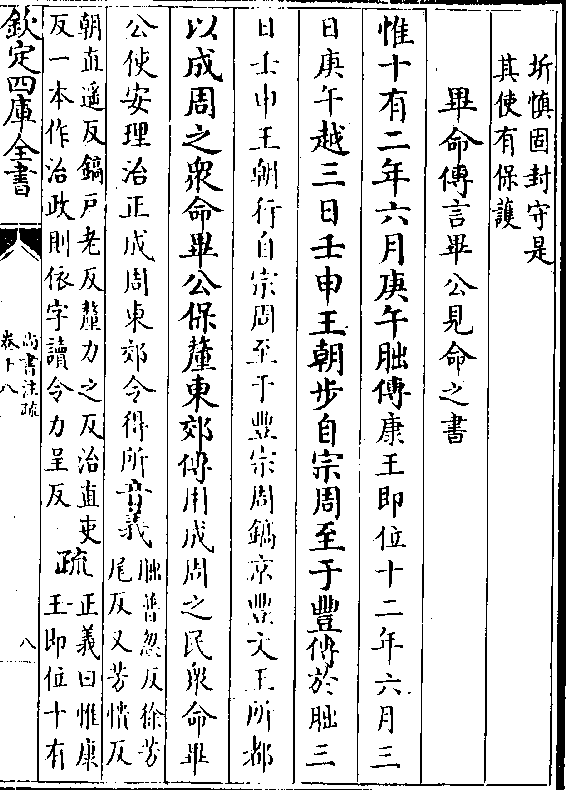 圻慎固封守是
其使有保護
畢命傳言畢公見命之書
惟十有二年六月庚午朏傳康王即位十二年六月三
日庚午越三日壬申王朝步自宗周至于豐傳於朏三
日壬申王朝行自宗周至于豐宗周鎬京豐文王所都
以成周之衆命畢公保釐東郊傳用成周之民衆命畢
公使安理治正成周東郊令得所音義
朏普忽反徐芳
尾反又芳憒反
朝直遥反鎬戸老反釐力之反治直吏
反一本作治政則依字讀令力呈反
疏
正義曰惟康
王即位十有
欽定四庫全書
尚書注疏
卷十八
八